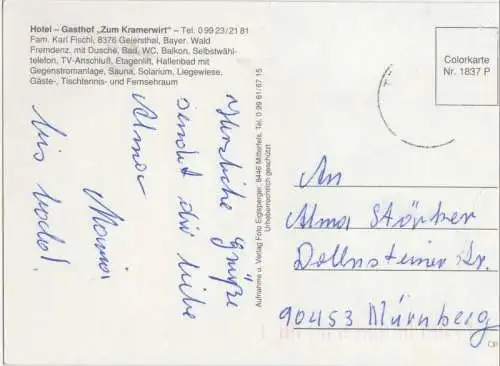 Hotel – Gasthof "Zum Kramerwirt" – Tel. 0 99 23/21 81
Fam. Karl Fischl, 8376 Geiersthal, Bayer. Wald
Fremdenz. mit Dusche, Bad, WC, Balkon, Selbstwähl-
telefon, TV-Anschluß, Etagenlift, Hallenbad mit
Gegenstromanlage, Sauna, Solarium, Liegewiese,
Gäste-, Tischtennis- und Fernsehraum
Colorkarte
Nr. 1837 P
Herzliche Grüße
sendet dir liebe
Alma
Maria
bis bald!
Aufnahme u. Verlag Foto Eiglsperger, 8446 Mitterfels, Tel. 0 99 61/67 15
Urheberrechtlich geschützt
An
Alma Störber
Dollnsteiner Str.
90453 Nürnberg